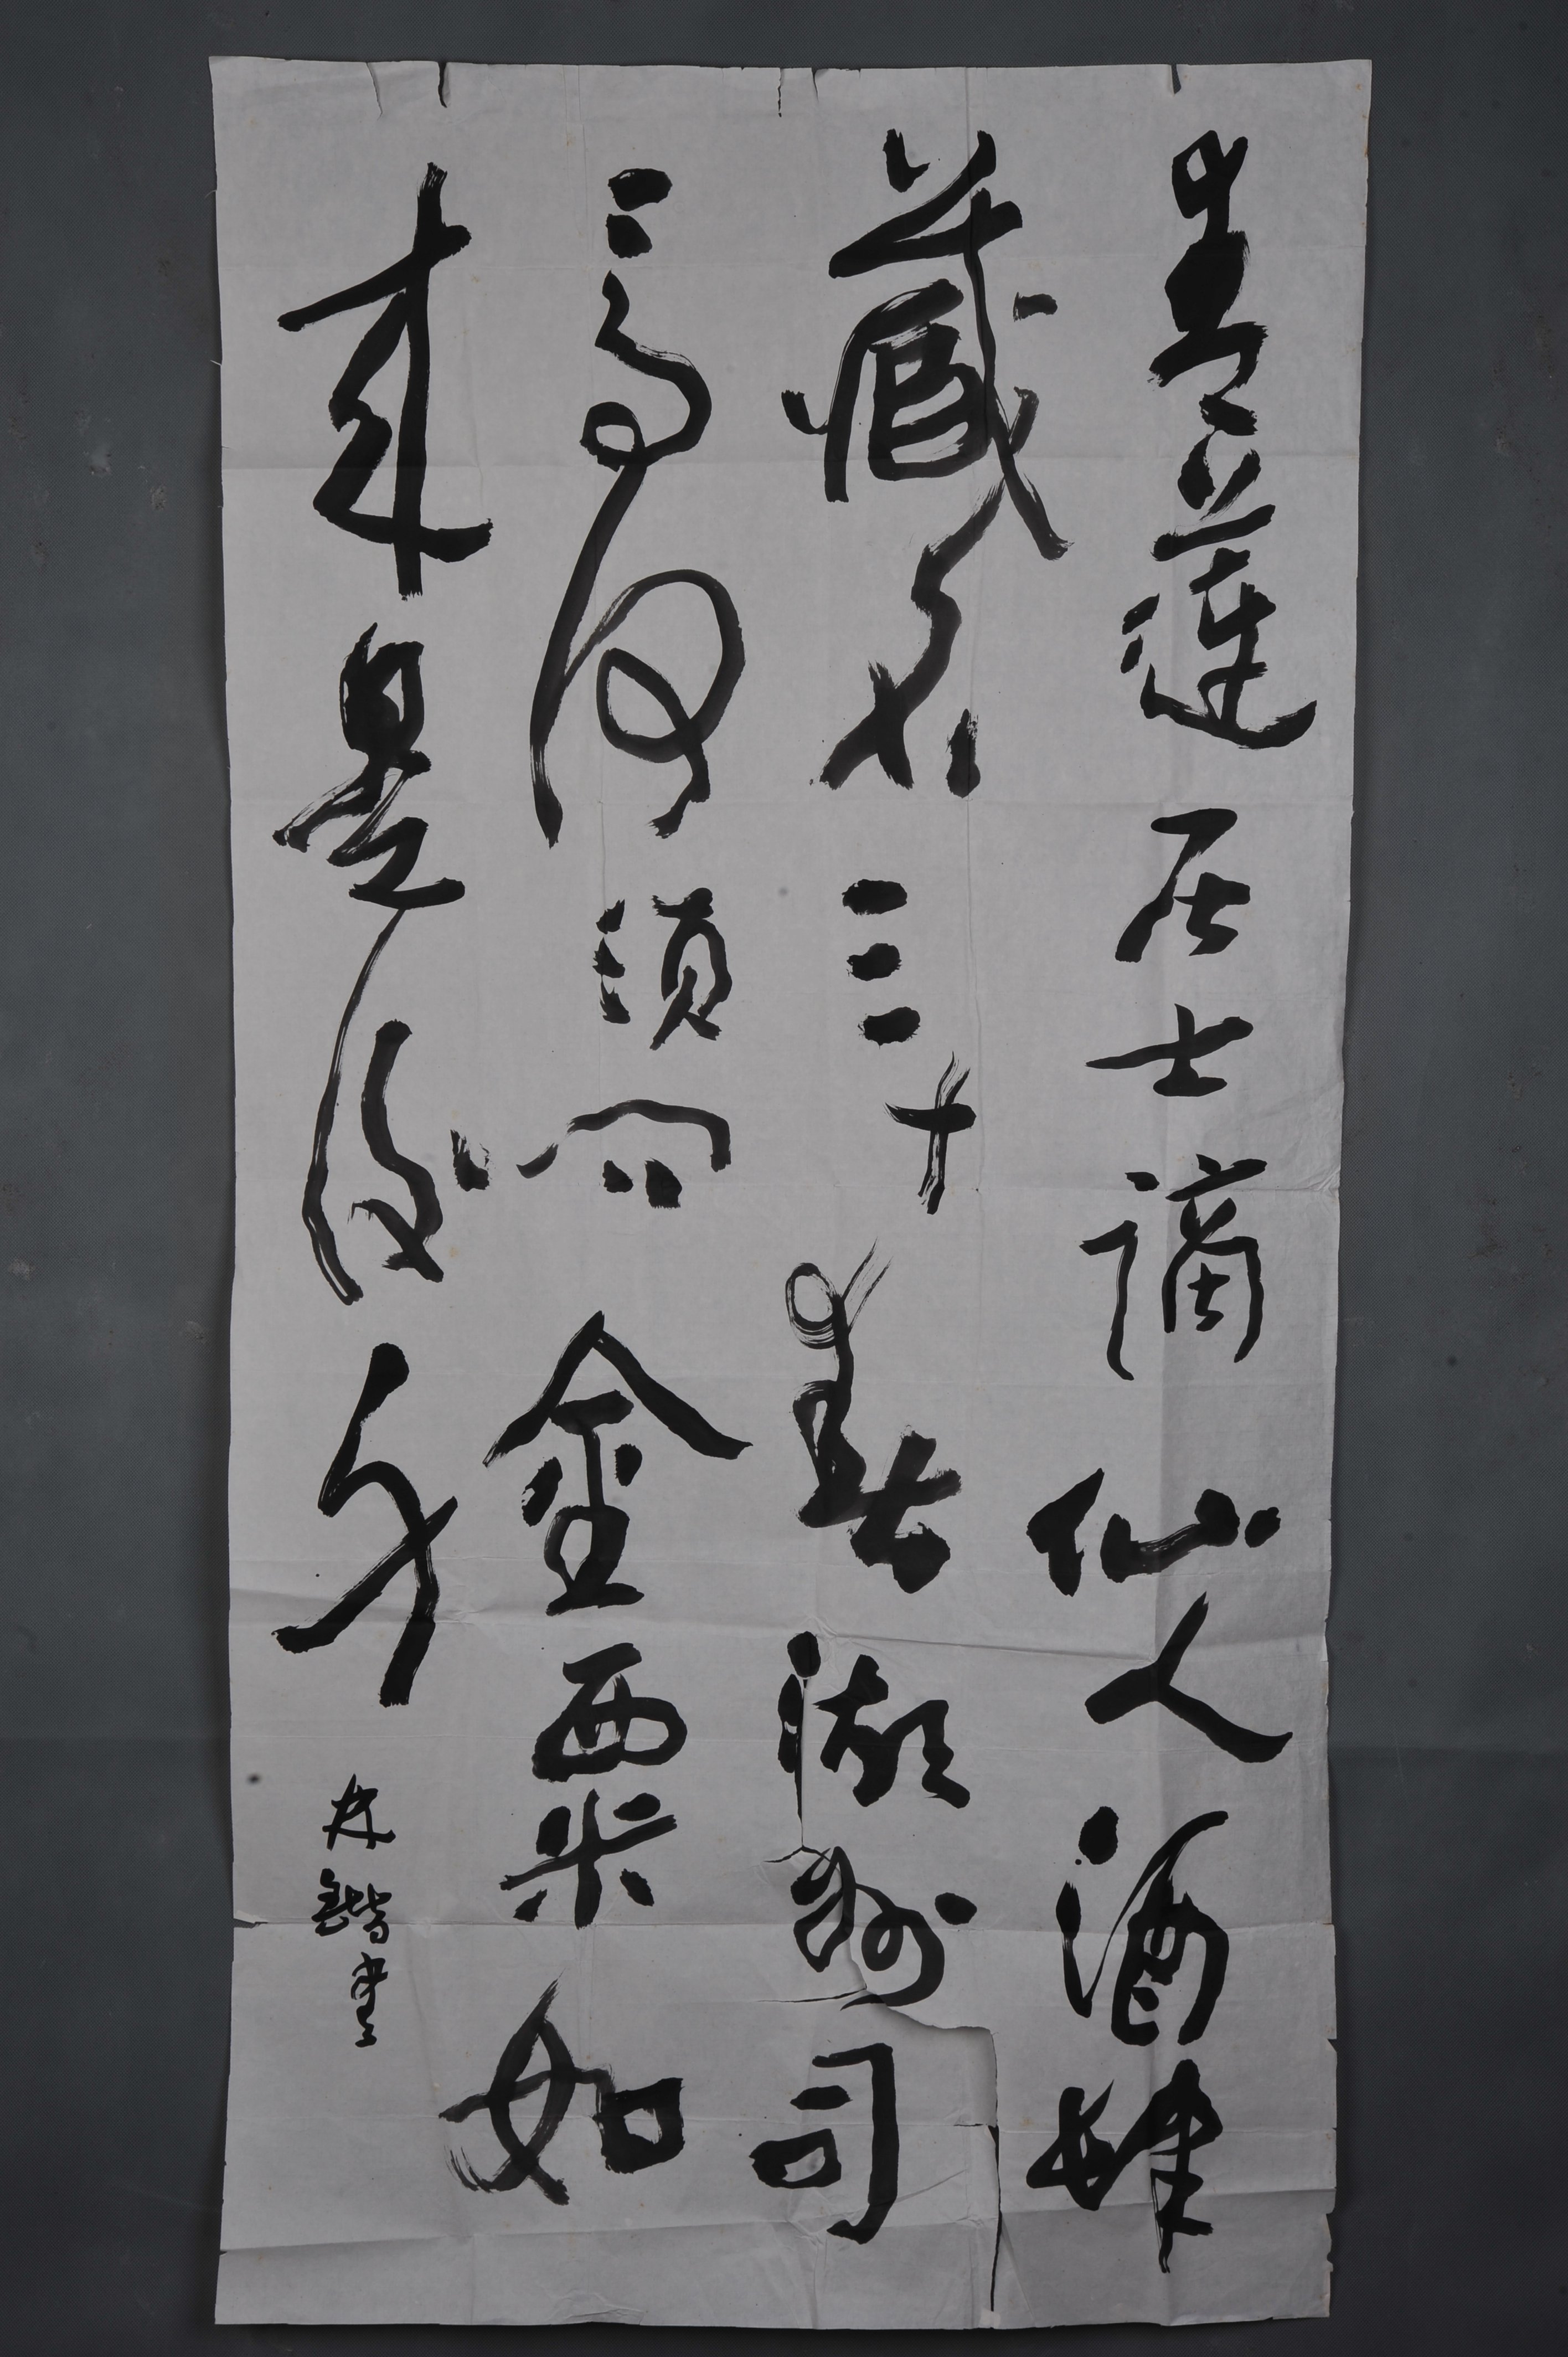 青蓮居士謫仙人酒肆
藏名三十春湖州司
馬何須問金粟如
來是後身
林鍇書